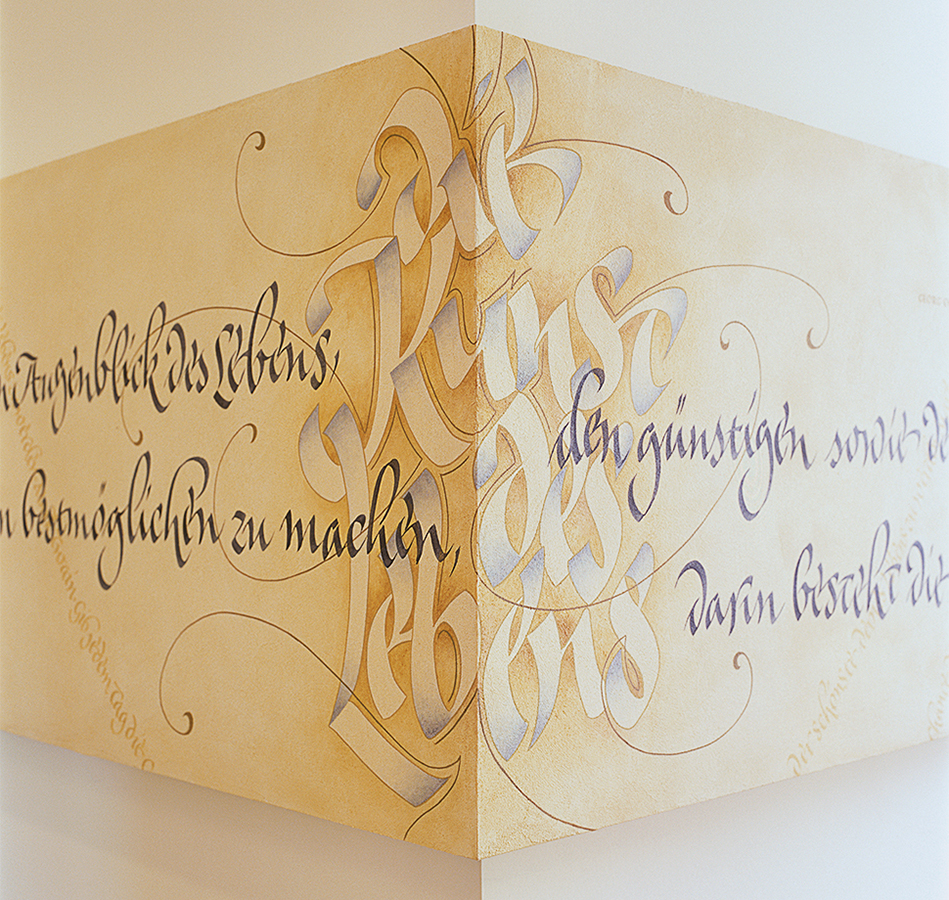 n Augenblick des Lebens,
n bestmöglichen zu machen,
Kunst
des
Lebens
den günstigen sowie de
darin besteht die
Gib jedem Tag die